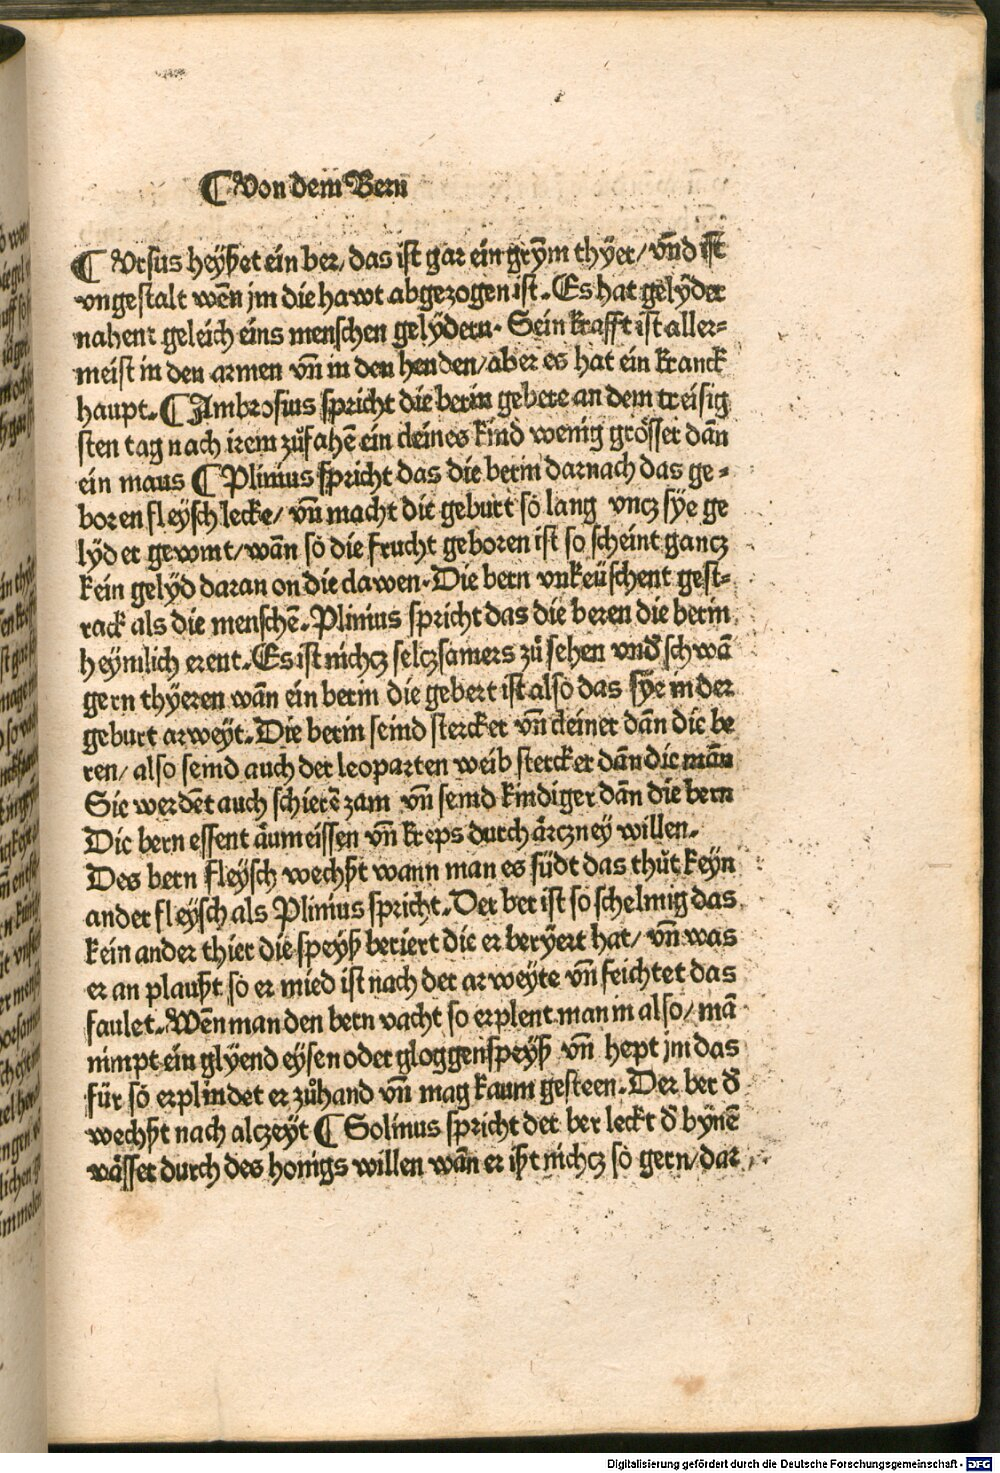 ¶ Von dem Bern
¶ Vrsus heyßet ein ber/ das ist gar ein grym̄ thyer/ vn̄d ist
vngestalt wen̄ jm die hawt abgezogen ist. Es hat gelÿder
nahent geleich eins menschen gelÿdern. Sein krafft ist aller=
meist in den armen vn̄ in den henden/ aber es hat ein kranck
haupt. ¶ Ambrosius spricht die berin gebere an dem treisig
sten tag nach irem zůfahē ein cleines kind wenig grösser dan̄
ein maus ¶ Plinius spricht das die berin darnach das ge=
boren fleysch lecke/ vn̄ macht die geburt so lang vncz sÿe ge
lÿder gewint/ wan̄ so die frucht geboren ist so scheint gancz
kein gelÿd daran on die clawen. Die bern vnkeüschent gest=
rack als die menschē. Plinius spricht das die beren die berin
heymlich erent. Es ist nichcz selczsamers zů sehen vnd̄ schwā
gern thyeren wan̄ ein berin die gebert ist also das sÿe in der
geburt arweyt. Die berin seind stercker vn̄ cleiner dan̄ die be
ren/ also seind auch der leoparten weib stercker dan̄ die man̄
Sie werdēt auch schierē zam vn̄ seind kindiger dan̄ die bern
Die bern essent aͤumeissen vn̄ kreps durch ärczney willen.
Des bern fleysch wechßt wann man es südt das thůt keyn
ander fleysch als Plinius spricht. Der ber ist so schelmig das
kein ander thier die speyß beriert die er berÿert hat/ vn̄ was
er an plaußt so er mied ist nach der arweyte vn̄ feichtet das
faulet. Wen̄ man den bern vacht so erplent man in also/ mā
nimpt ein glÿend eysen oder gloggenspeyß vn̄ hept jm das
für so erplindet er zůhand vn̄ mag kaum gesteen. Der ber d̄
wechßt nach alczeyt ¶ Solinus spricht der ber leckt d̄ bynē
wässer durch des honigs willen wan̄ er ißt nichcz so gern/ dar